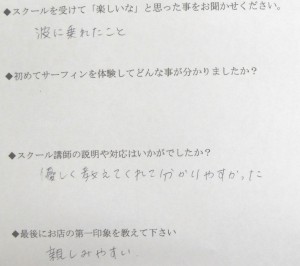 ◆スクールを受けて「楽しいな」と思った事をお聞かせください。
波に乗れたこと
◆初めてサーフィンを体験してどんな事が分かりましたか?
◆スクール講師の説明や対応はいかがでしたか?
優しく教えてくれて分かりやすかった
◆最後にお店の第一印象を教えて下さい
親しみやすい